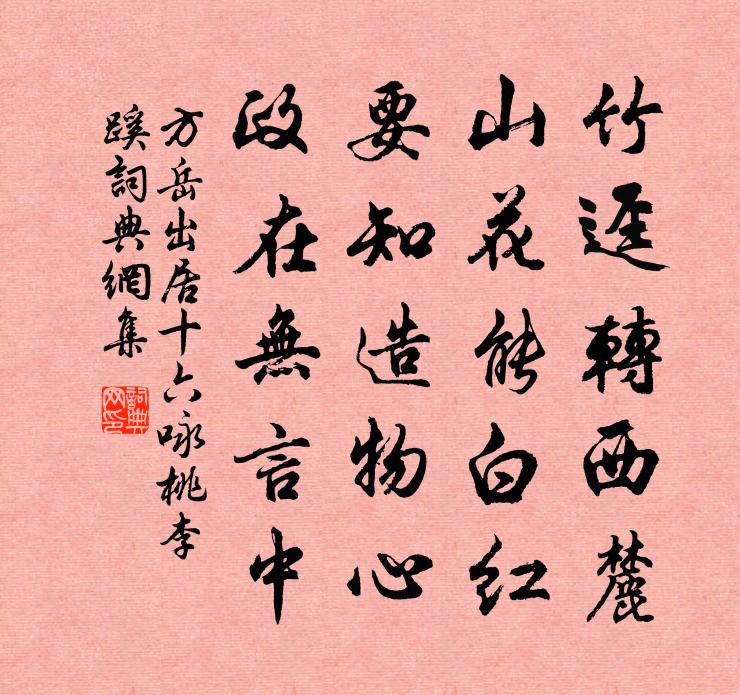 竹逕轉西麓
山花能白紅
要知造物心
政在無言中
方岳出居十六咏桃李
蹊詞典網集
詞典网印